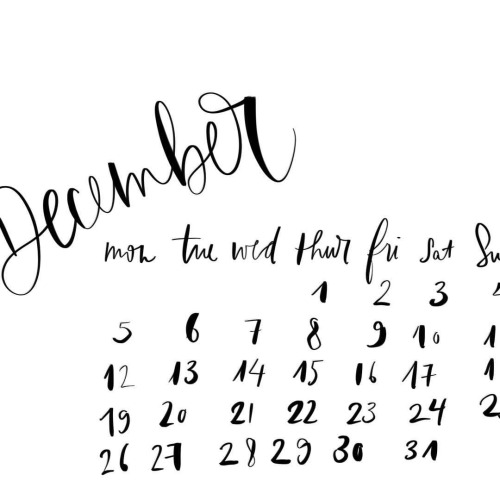 December
mon tue wed thur fri sat Su
1 2 3 4
5 6 7 8 9 10 1
12 13 14 15 16 17 1
19 20 21 22 23 24 2
26 27 28 29 30 31